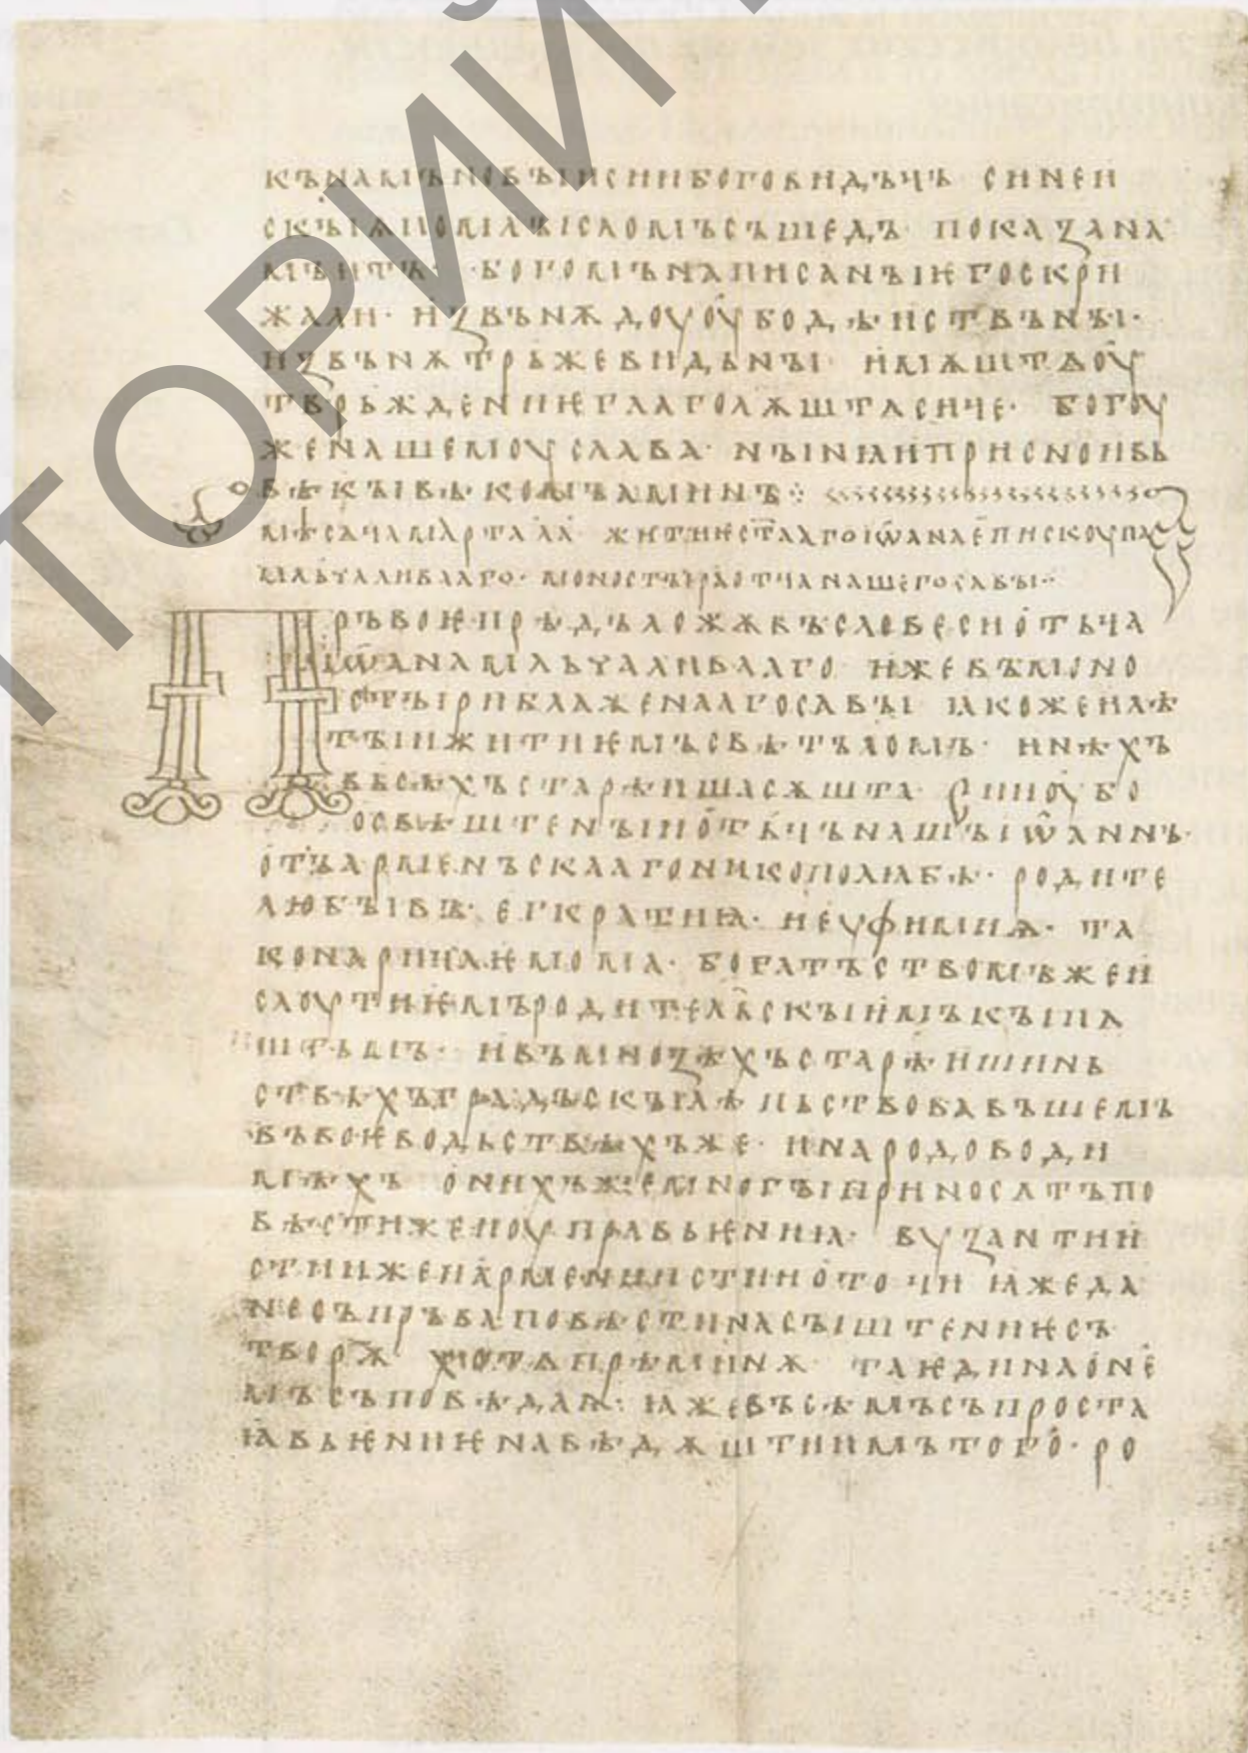 ТОРИЙ
къна мъновъіисиибоговидьчь синеи
скъіѧпомꙑсломъсъшедъ показана
мъитъ· богомьнаписанъіѥгоскри
жали· извънѫдоуоубодѣиствьнъі·
извънѫтрьжевидьнъі имѫштвоу
тврьждениѥглаголѫштасиче· богоу
женашемоуслава· нъінꙗиприсноивь
вѣкъівѣкомъаминъ
мѣсѧчамартала· житиест҃аагоіѡанаепискоупа
мльчаливааго· моностꙑраотчанашегосавъі·
Пръвоѥпрѣдъложѫкъсловеснотьча
іѡанамльчаливааго ижевъмоно
стъірибл҃аженаагосавъі ꙗкоженалѣ
тъіижитиѥмьсвѣтъломь· инѣхъ
вьсѣхъстарѣишасѫшта Сииоубо
освѣштенъіиотьчьнашьіѡаннъ·
отъарменъскаагоникополꙗбѣ· родите
любъівѣ· егкратиꙗ· иеуфимиѩ· та
конаричаѥмома· богатъствомьжеи
слоутиѥмъродительскъіимькъіпѧ
штьмъ· ивъмнозѣхъстарѣишинь
ствѣхъградьскъілѣпьствовавъшемъ
въвоѥводьствѣхъже· инародоводи
мѣхъ онихъжемногъіприноситъпо
вѣстижеиоуправьѥниꙗ· вузантии
стиижеиарменииистиноточи ꙗжеда
несъпръваповѣстинасъіштениѥсъ
творѫ хотьпрѣминѫ таѥдинаоне
мъсъповѣдаѩ· ꙗжевьсѣмъсъпроста
ꙗвьѥниѥнавѣдѫштиимътого· ро